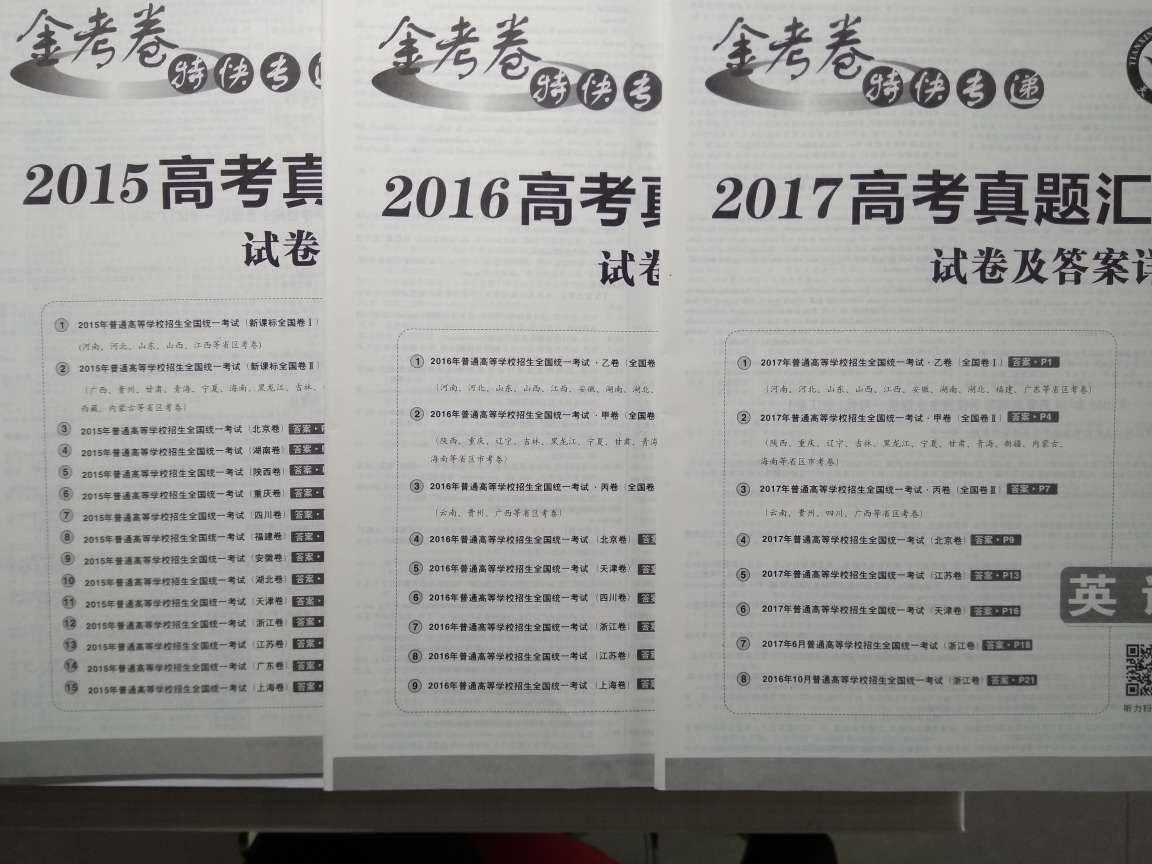 金考卷
特快专
2015高考真
试卷
1 2015年普通高等学校招生全国统一考试（新课标全国卷Ⅰ）
（河南、河北、山东、山西、江西等省区考卷）
2 2015年普通高等学校招生全国统一考试（新课标全国卷Ⅱ
（广西、贵州、甘肃、青海、宁夏、海南、黑龙江、吉林、
西藏、内蒙古等省区考卷）
3 2015年普通高等学校招生全国统一考试（北京卷）答案·
4 2015年普通高等学校招生全国统一考试（湖南卷）答案·
5 2015年普通高等学校招生全国统一考试（陕西卷）答案·
6 2015年普通高等学校招生全国统一考试（重庆卷）答案·
7 2015年普通高等学校招生全国统一考试（四川卷）答案·
8 2015年普通高等学校招生全国统一考试（福建卷）答案·
9 2015年普通高等学校招生全国统一考试（安徽卷）答案·
10 2015年普通高等学校招生全国统一考试（湖北卷）答案·
11 2015年普通高等学校招生全国统一考试（天津卷）答案·
12 2015年普通高等学校招生全国统一考试（浙江卷）答案·
13 2015年普通高等学校招生全国统一考试（江苏卷）答案·
14 2015年普通高等学校招生全国统一考试（广东卷）答案·
15 2015年普通高等学校招生全国统一考试（上海卷）答案·
金考卷
特快专
2016高考真
试卷
1 2016年普通高等学校招生全国统一考试·乙卷（全国卷
（河南、河北、山东、山西、江西、安徽、湖南、湖北、
2 2016年普通高等学校招生全国统一考试·甲卷（全国卷
（陕西、重庆、辽宁、吉林、黑龙江、宁夏、甘肃、青海
海南等省区市考卷）
3 2016年普通高等学校招生全国统一考试·丙卷（全国卷
（云南、贵州、广西等省区考卷）
4 2016年普通高等学校招生全国统一考试（北京卷）答
5 2016年普通高等学校招生全国统一考试（天津卷）答
6 2016年普通高等学校招生全国统一考试（四川卷）答
7 2016年普通高等学校招生全国统一考试（浙江卷）答
8 2016年普通高等学校招生全国统一考试（江苏卷）答
9 2016年普通高等学校招生全国统一考试（上海卷）答
金考卷
特快专递
2017高考真题汇
试卷及答案详
1 2017年普通高等学校招生全国统一考试·乙卷（全国卷Ⅰ）答案·P1
（河南、河北、山东、山西、江西、安徽、湖南、湖北、福建、广东等省区考卷）
2 2017年普通高等学校招生全国统一考试·甲卷（全国卷Ⅱ）答案·P4
（陕西、重庆、辽宁、吉林、黑龙江、宁夏、甘肃、青海、新疆、内蒙古、
海南等省区市考卷）
3 2017年普通高等学校招生全国统一考试·丙卷（全国卷Ⅲ）答案·P7
（云南、贵州、四川、广西等省区考卷）
4 2017年普通高等学校招生全国统一考试（北京卷）答案·P9
5 2017年普通高等学校招生全国统一考试（江苏卷）答案·P13
6 2017年普通高等学校招生全国统一考试（天津卷）答案·P16
7 2017年6月普通高等学校招生全国统一考试（浙江卷）答案·P18
8 2016年10月普通高等学校招生全国统一考试（浙江卷）答案·P21
英语
听力扫